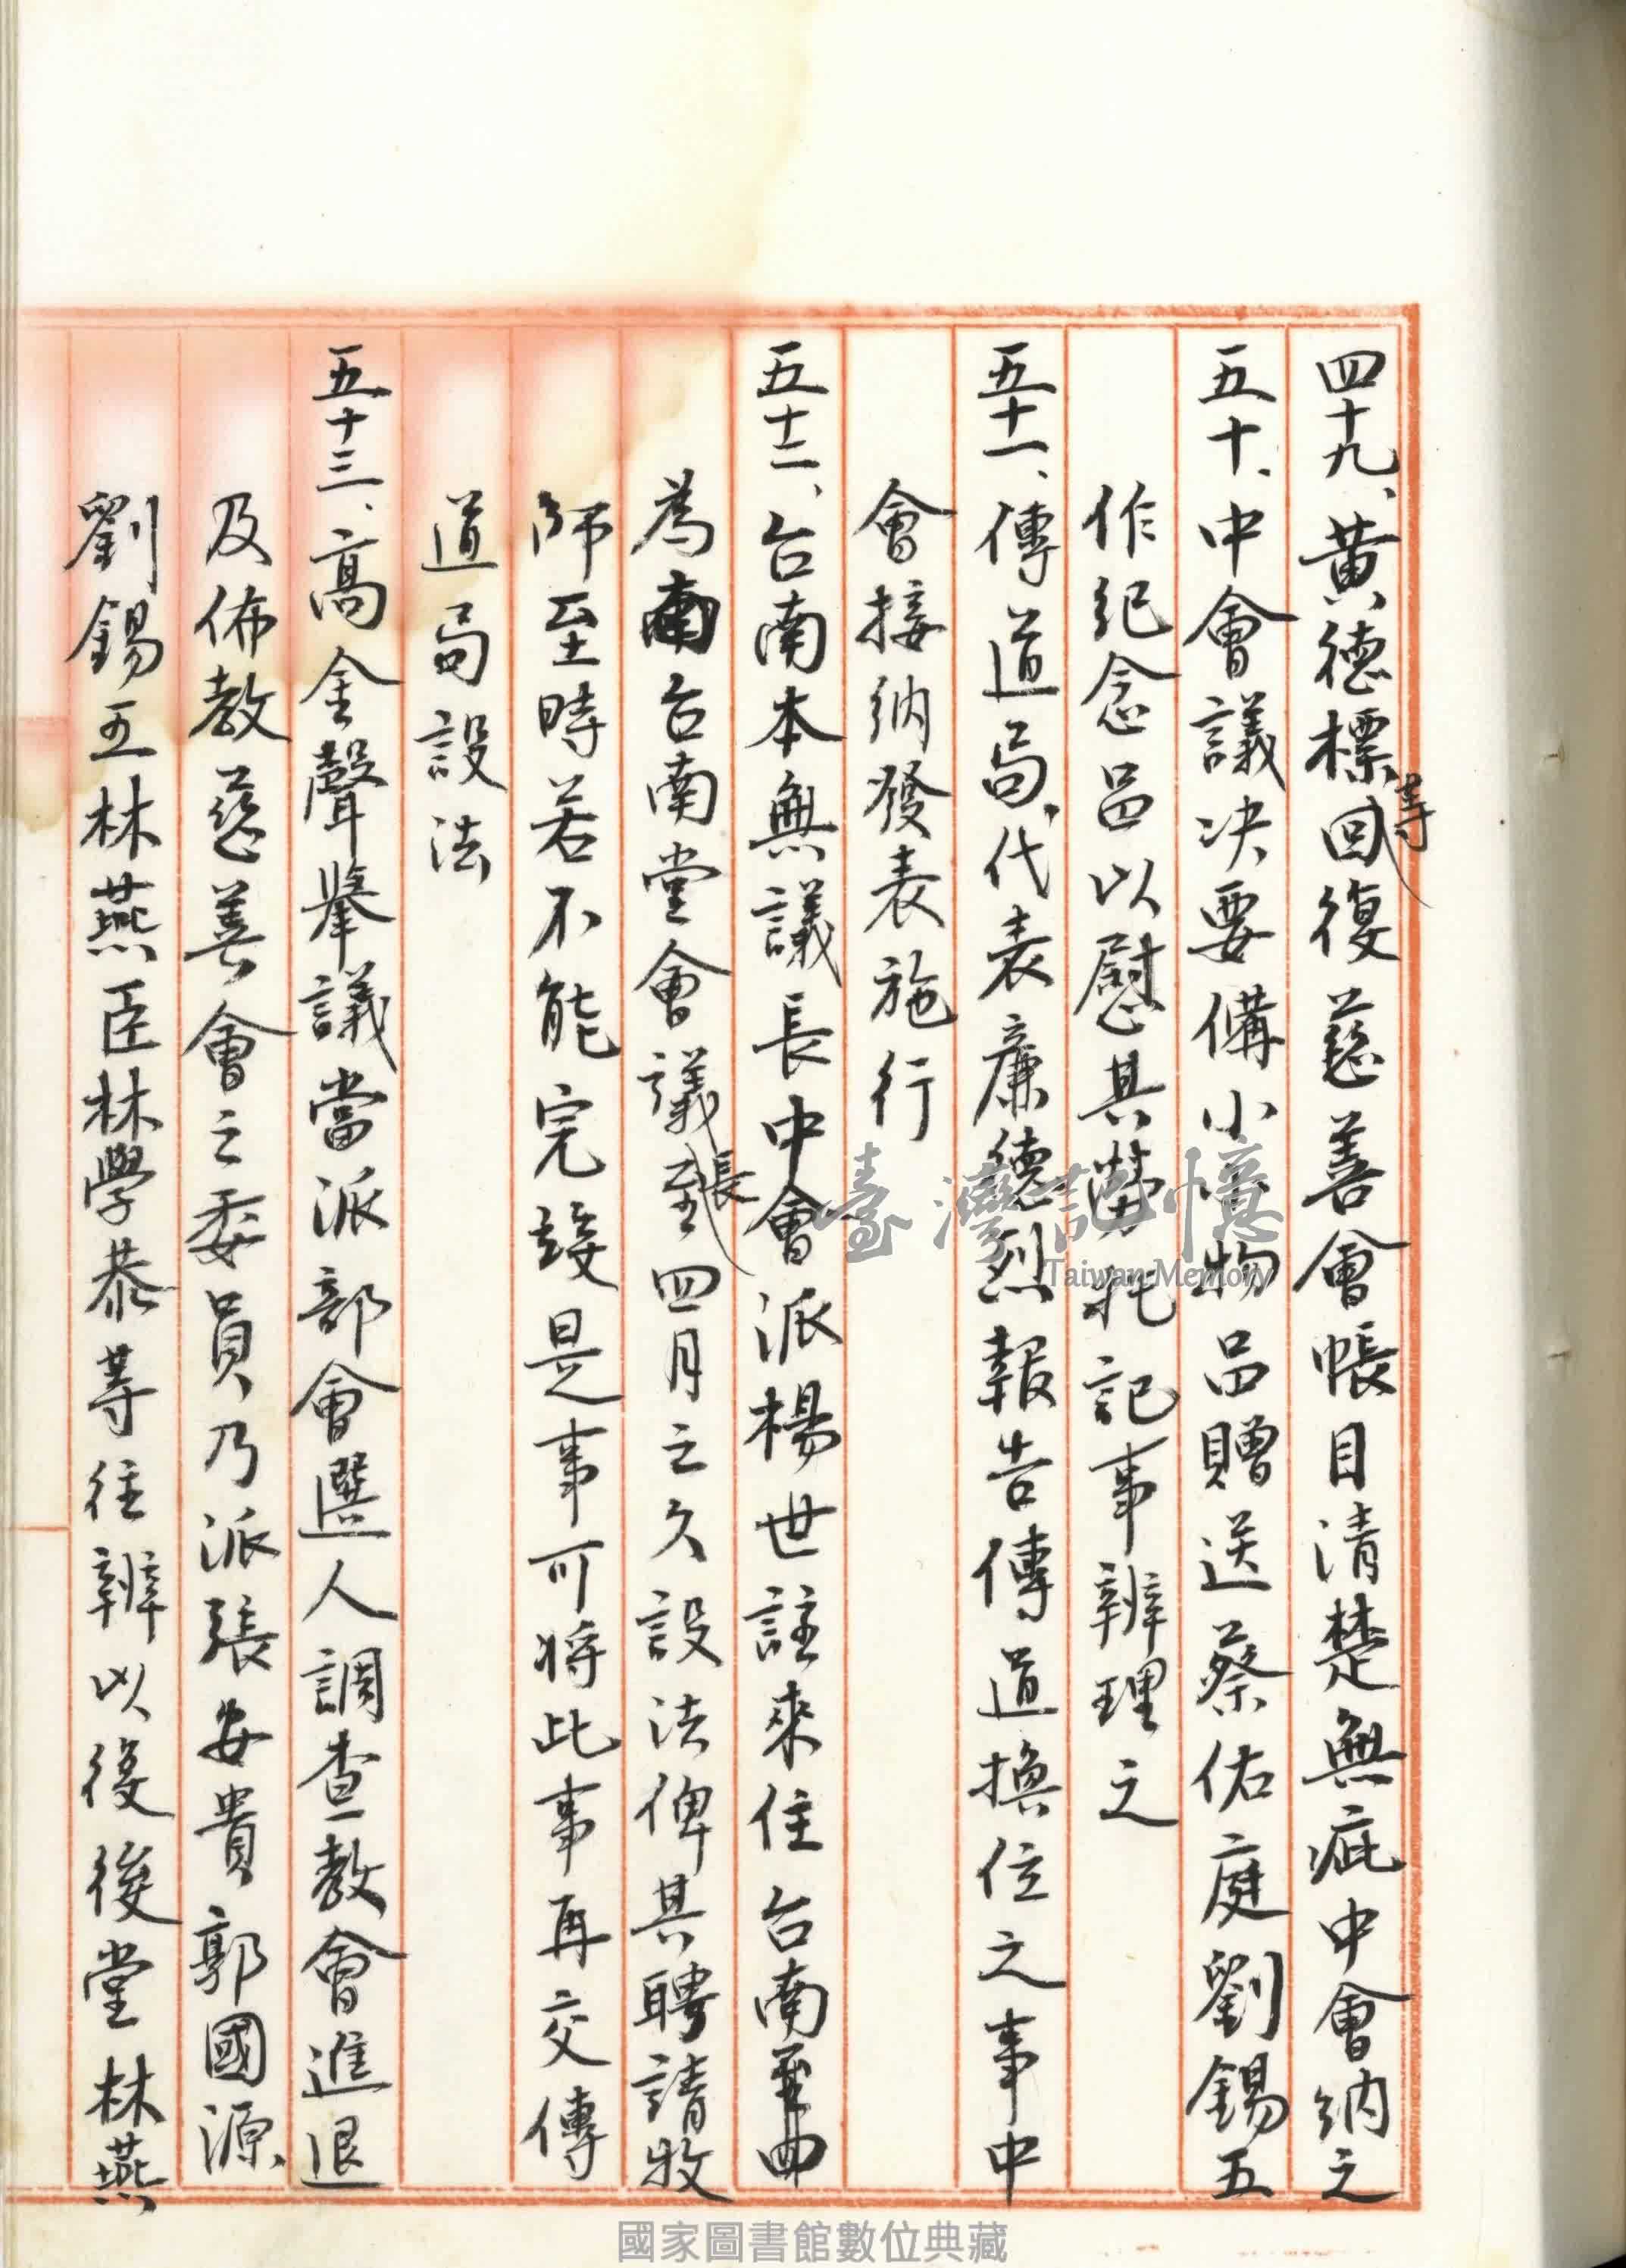 四十九、黃德標等回復慈善會帳目清楚無疵中會納之
五十、中會議决要備小物品贈送蔡佑庭劉錫五
作紀念品以慰其勞托記事辨理之
五十一、傳道局代表廉德烈報告傳道換位之事中
會接納發表施行
五十二、台南本無議長中會派楊世註來住台南
為南台南堂會議長至四月之久設法俾其聘請牧
師至時若不能完竣是事可將此事再交傳
道局設法
五十三、高金聲舉議當派部會選人調查教會進退
及佈教慈善會之委員乃派張安貴郭國源
劉錫五林燕臣林學恭等往辨以後後堂林燕
臺灣記憶
Taiwan Memory
國家圖書館數位典藏